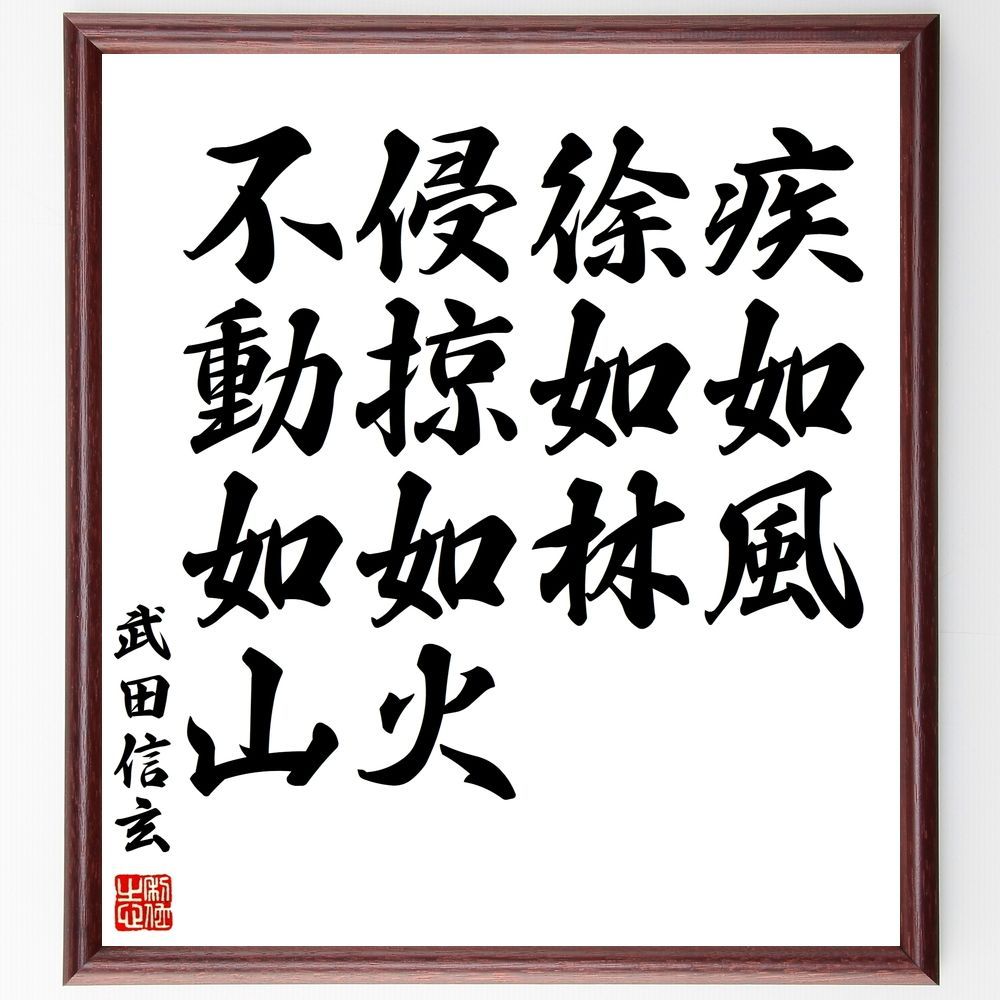 疾如風
徐如林
侵掠如火
不動如山
武田信玄